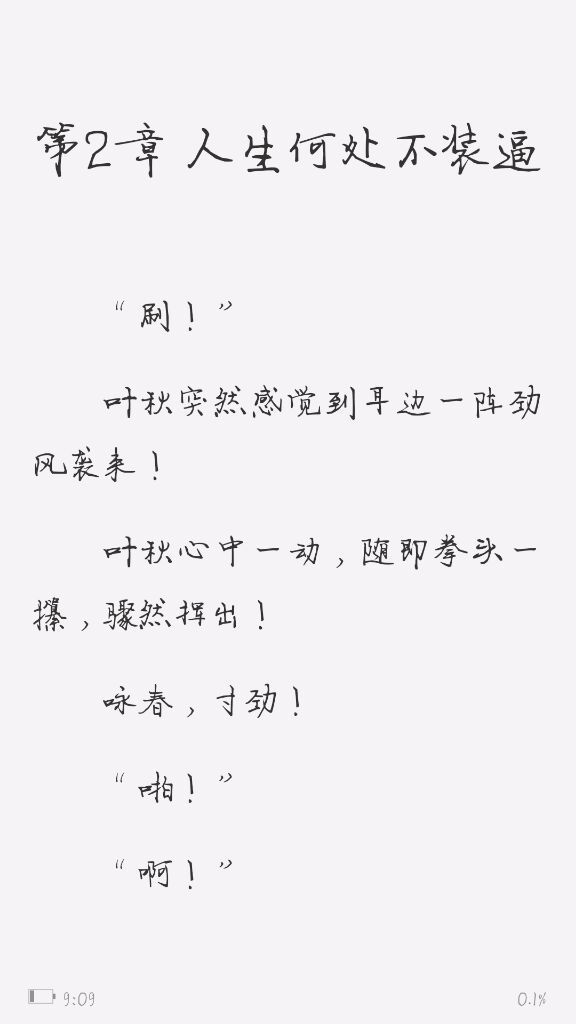 第2章 人生何处不装逼
“刷！”
叶秋突然感觉到耳边一阵劲
风袭来！
叶秋心中一动，随即拳头一
攥，骤然挥出！
咏春，寸劲！
“啪！”
“啊！”
9:09
0.1%